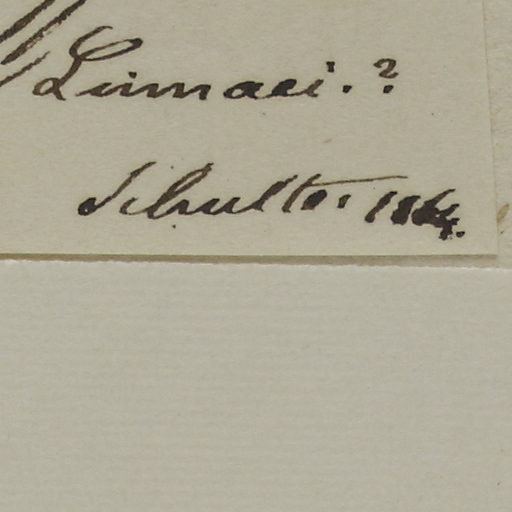 Linnaei.?
Schultes 1864.